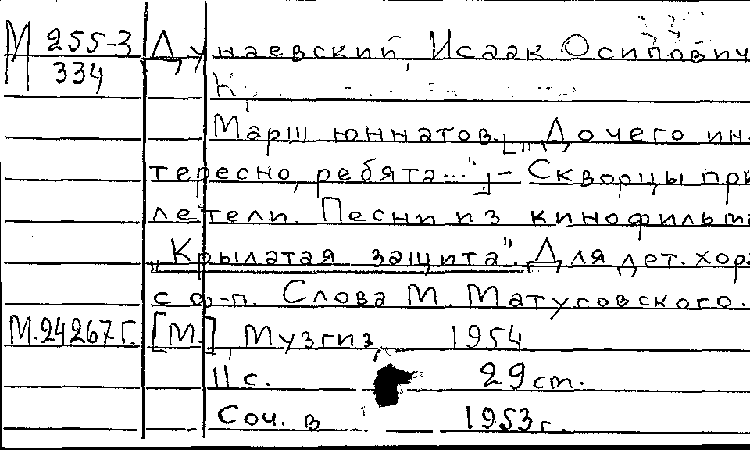 М 255-3 Дунаевский, Исаак Осипович
334
Марш юннатов. [„До чего ин-
тересно, ребята..."] - Скворцы при
летели. Песни из кинофильма
„Крылатая защита". Для дет. хора
с ф-п. Слова М. Матусовского.
М.24267г. [М.] Музгиз, 1954
11 с. 29 ст.
Соч. в 1953 г.